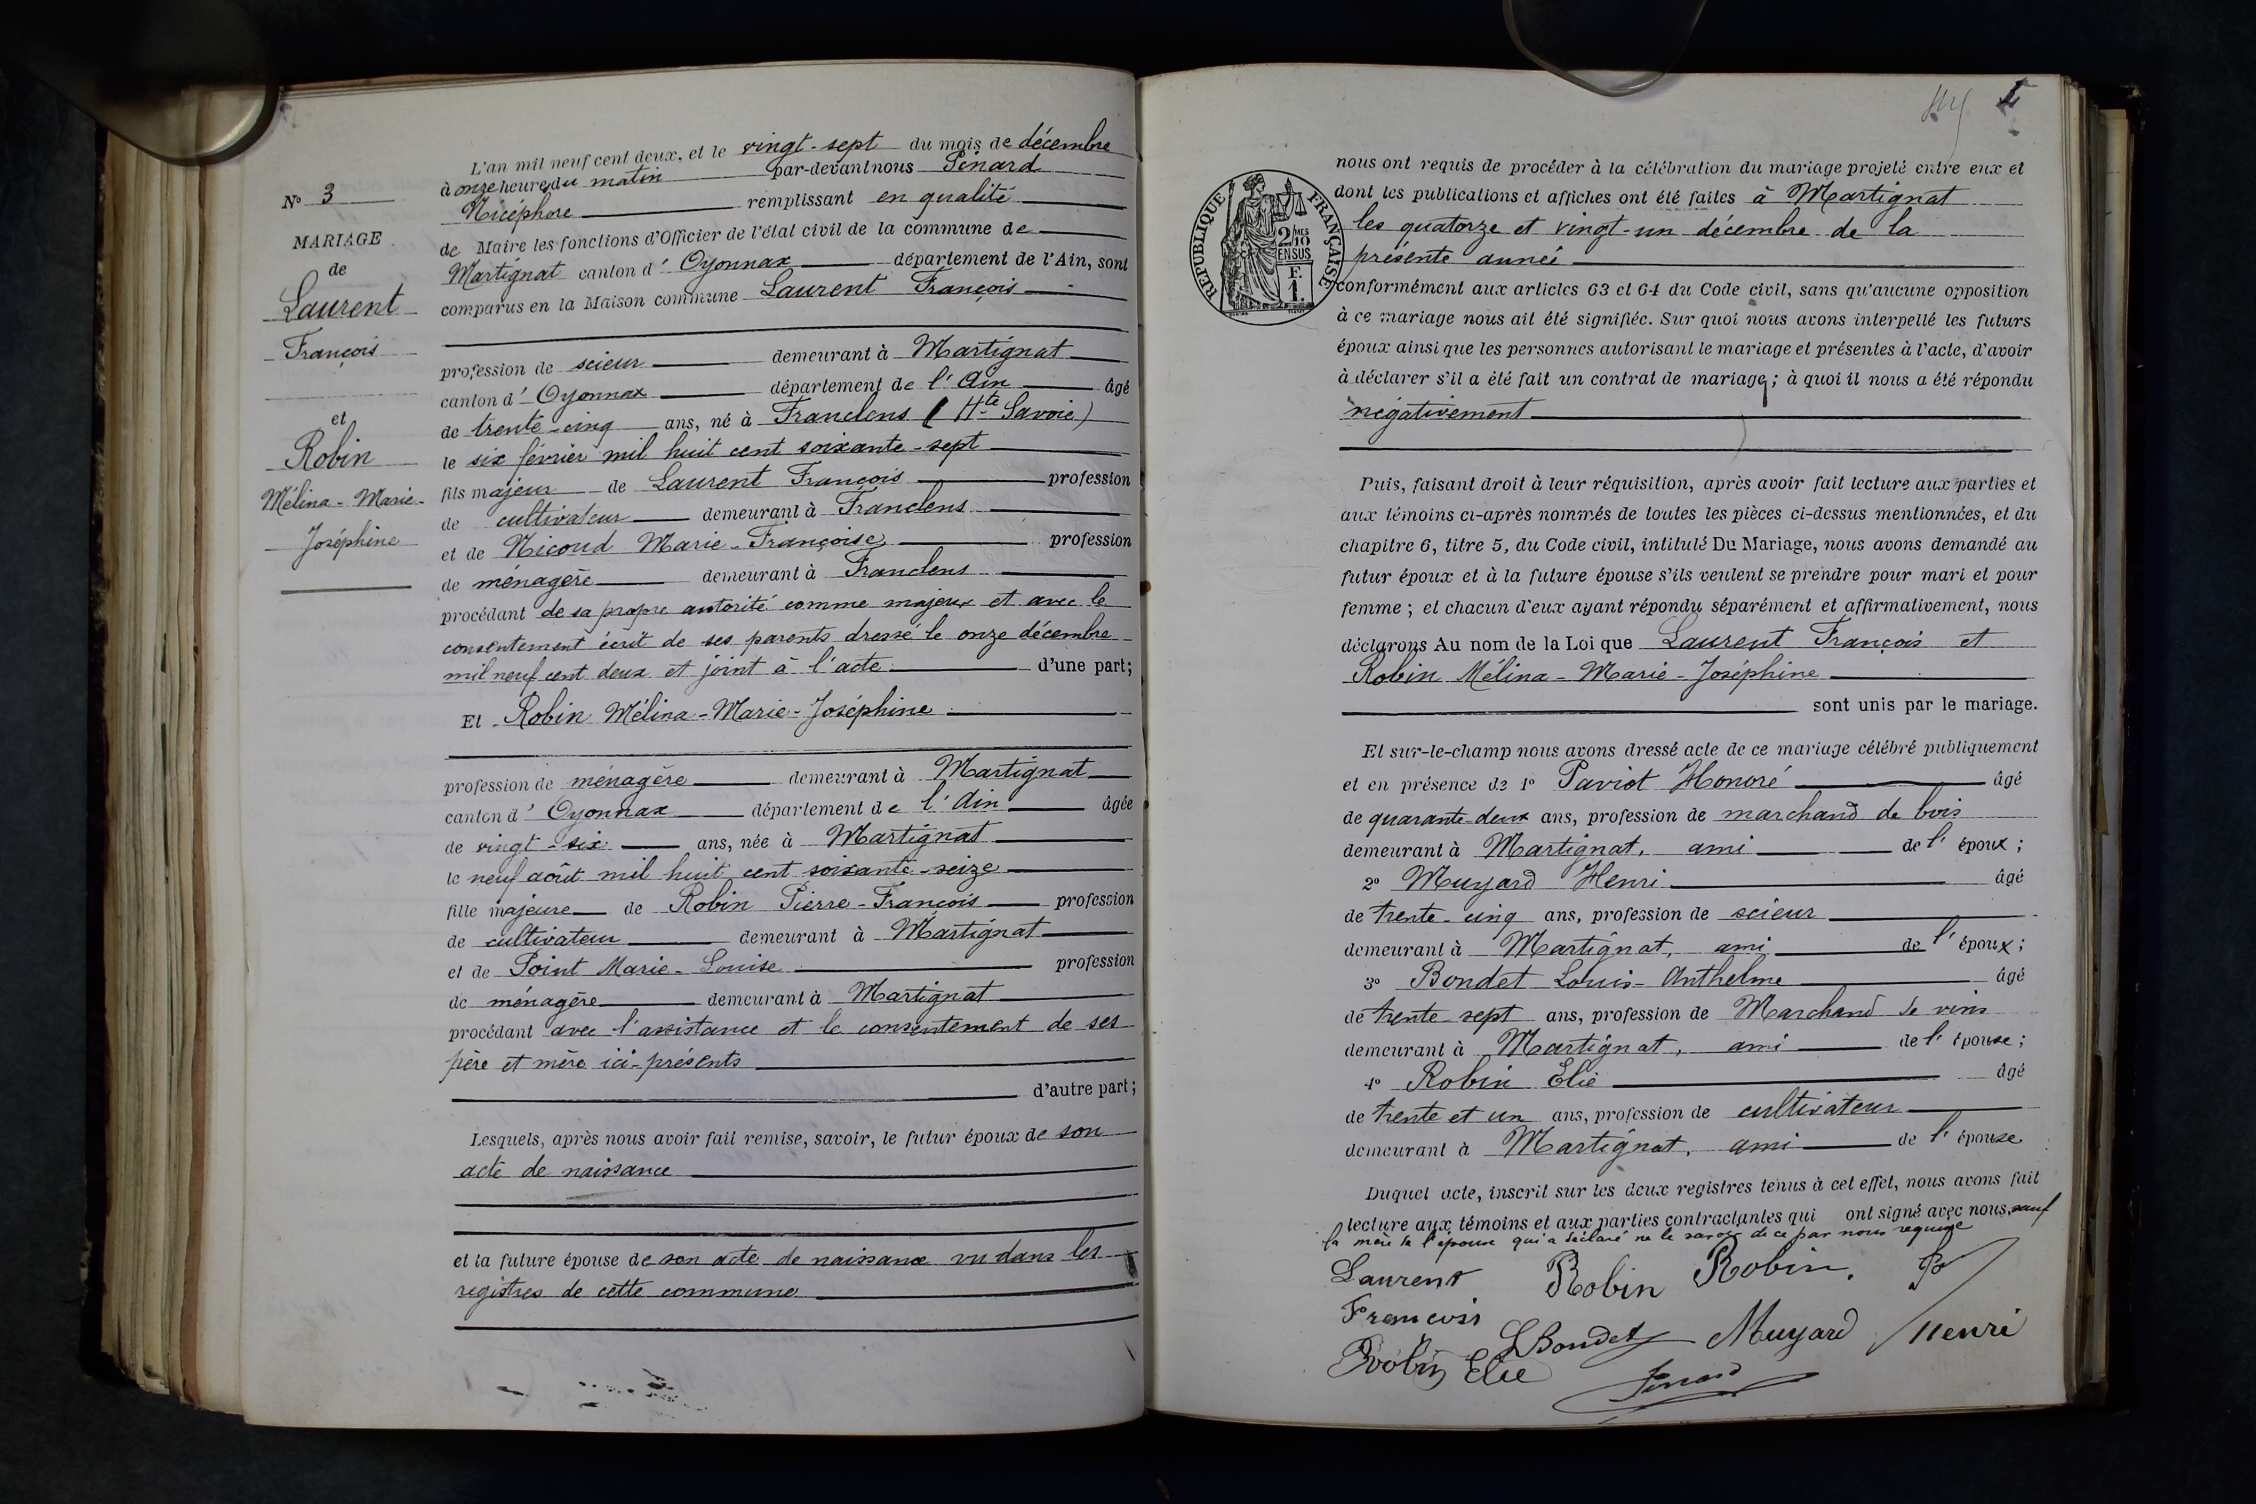 N° 3
MARIAGE
de
Laurent
François
et
Robin
Mélina-Marie-
Joséphine
L'an mil neuf cent deux, et le vingt-sept du mois de décembre
à onze heures du matin par-devant nous Pinard
Nicéphore remplissant en qualité
de Maire les fonctions d'Officier de l'état civil de la commune de
Martignat canton d' Oyonnax département de l'Ain, sont
comparus en la Maison commune Laurent François
profession de scieur demeurant à Martignat
canton d' Oyonnax département de l'Ain âgé
de trente-cinq ans, né à Franclens (Hte Savoie)
le six février mil huit cent soixante-sept
fils majeur de Laurent François profession
de cultivateur demeurant à Franclens
et de Nicoud Marie-Françoise profession
de ménagère demeurant à Franclens
procédant de sa propre autorité comme majeur et avec le
consentement écrit de ses parents dressé le onze décembre
mil neuf cent deux et joint à l'acte d'une part;
Et Robin Mélina-Marie-Joséphine
profession de ménagère demeurant à Martignat
canton d' Oyonnax département de l'Ain âgée
de vingt-six ans, née à Martignat
le neuf août mil huit cent soixante-seize
fille majeure de Robin Pierre-François profession
de cultivateur demeurant à Martignat
et de Point Marie-Louise profession
de ménagère demeurant à Martignat
procédant avec l'assistance et le consentement de ses
père et mère ici-présents
d'autre part;
Lesquels, après nous avoir fait remise, savoir, le futur époux de son
acte de naissance
et la future épouse de son acte de naissance vu dans les
registres de cette commune
RÉPUBLIQUE FRANÇAISE
2/10 EN SUS
F.
1.
nous ont requis de procéder à la célébration du mariage projeté entre eux et
dont les publications et affiches ont été faites à Martignat
les quatorze et vingt-un décembre de la
présente année
conformément aux articles 63 et 64 du Code civil, sans qu'aucune opposition
à ce mariage nous ait été signifiée. Sur quoi nous avons interpellé les futurs
époux ainsi que les personnes autorisant le mariage et présentes à l'acte, d'avoir
à déclarer s'il a été fait un contrat de mariage; à quoi il nous a été répondu
négativement
Puis, faisant droit à leur réquisition, après avoir fait lecture aux parties et
aux témoins ci-après nommés de toutes les pièces ci-dessus mentionnées, et du
chapitre 6, titre 5, du Code civil, intitulé Du Mariage, nous avons demandé au
futur époux et à la future épouse s'ils veulent se prendre pour mari et pour
femme; et chacun d'eux ayant répondu séparément et affirmativement, nous
déclarons Au nom de la Loi que Laurent François et
Robin Mélina-Marie-Joséphine
sont unis par le mariage.
Et sur-le-champ nous avons dressé acte de ce mariage célébré publiquement
et en présence de 1° Paviot Honoré âgé
de quarante-deux ans, profession de marchand de bois
demeurant à Martignat, ami de l'époux;
2° Muyard Henri âgé
de trente-cinq ans, profession de scieur
demeurant à Martignat, ami de l'époux;
3° Bondet Louis-Anthelme âgé
de trente-sept ans, profession de Marchand de vins
demeurant à Martignat, ami de l'épouse;
4° Robin Elie âgé
de trente et un ans, profession de cultivateur
demeurant à Martignat, ami de l'épouse
Duquel acte, inscrit sur les deux registres tenus à cet effet, nous avons fait
lecture aux témoins et aux parties contractantes qui ont signé avec nous, sauf
la mère de l'épouse qui a déclaré ne le savoir de ce par nous requise
Laurent Robin Robin.
François
L Bondet Muyard Henri
Robin Elie
Pinard